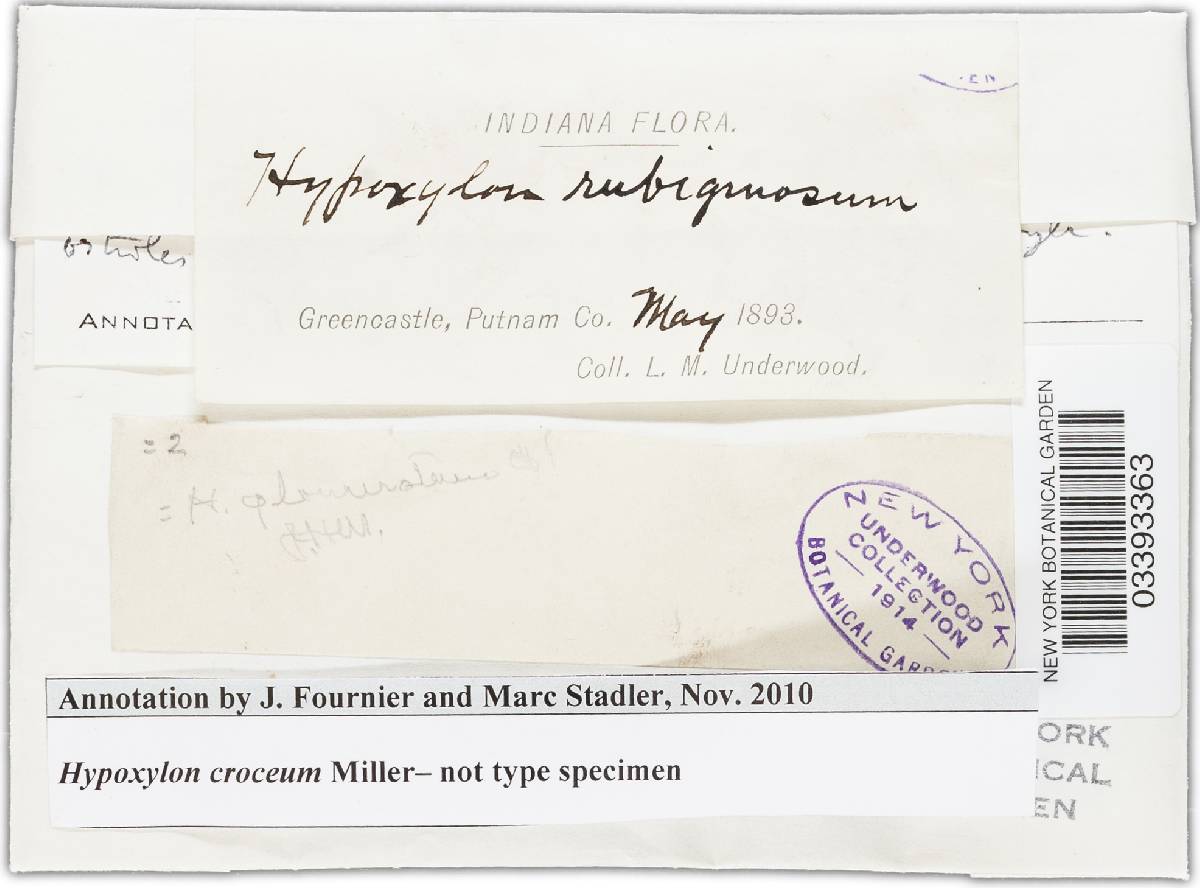 INDIANA FLORA.
Hypoxylon rubiginosum
ostioles
ANNOTA
Greencastle, Putnam Co. May 1893.
Coll. L. M. Underwood.
= 2
= H.
NEW YORK
UNDERWOOD
COLLECTION
1914
BOTANICAL GARDEN
NEW YORK BOTANICAL GARDEN
03393363
Annotation by J. Fournier and Marc Stadler, Nov. 2010
Hypoxylon croceum Miller– not type specimen
ORK
ICAL
EN